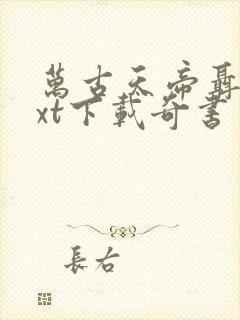 萬古天帝聶
xt下載奇書
長右